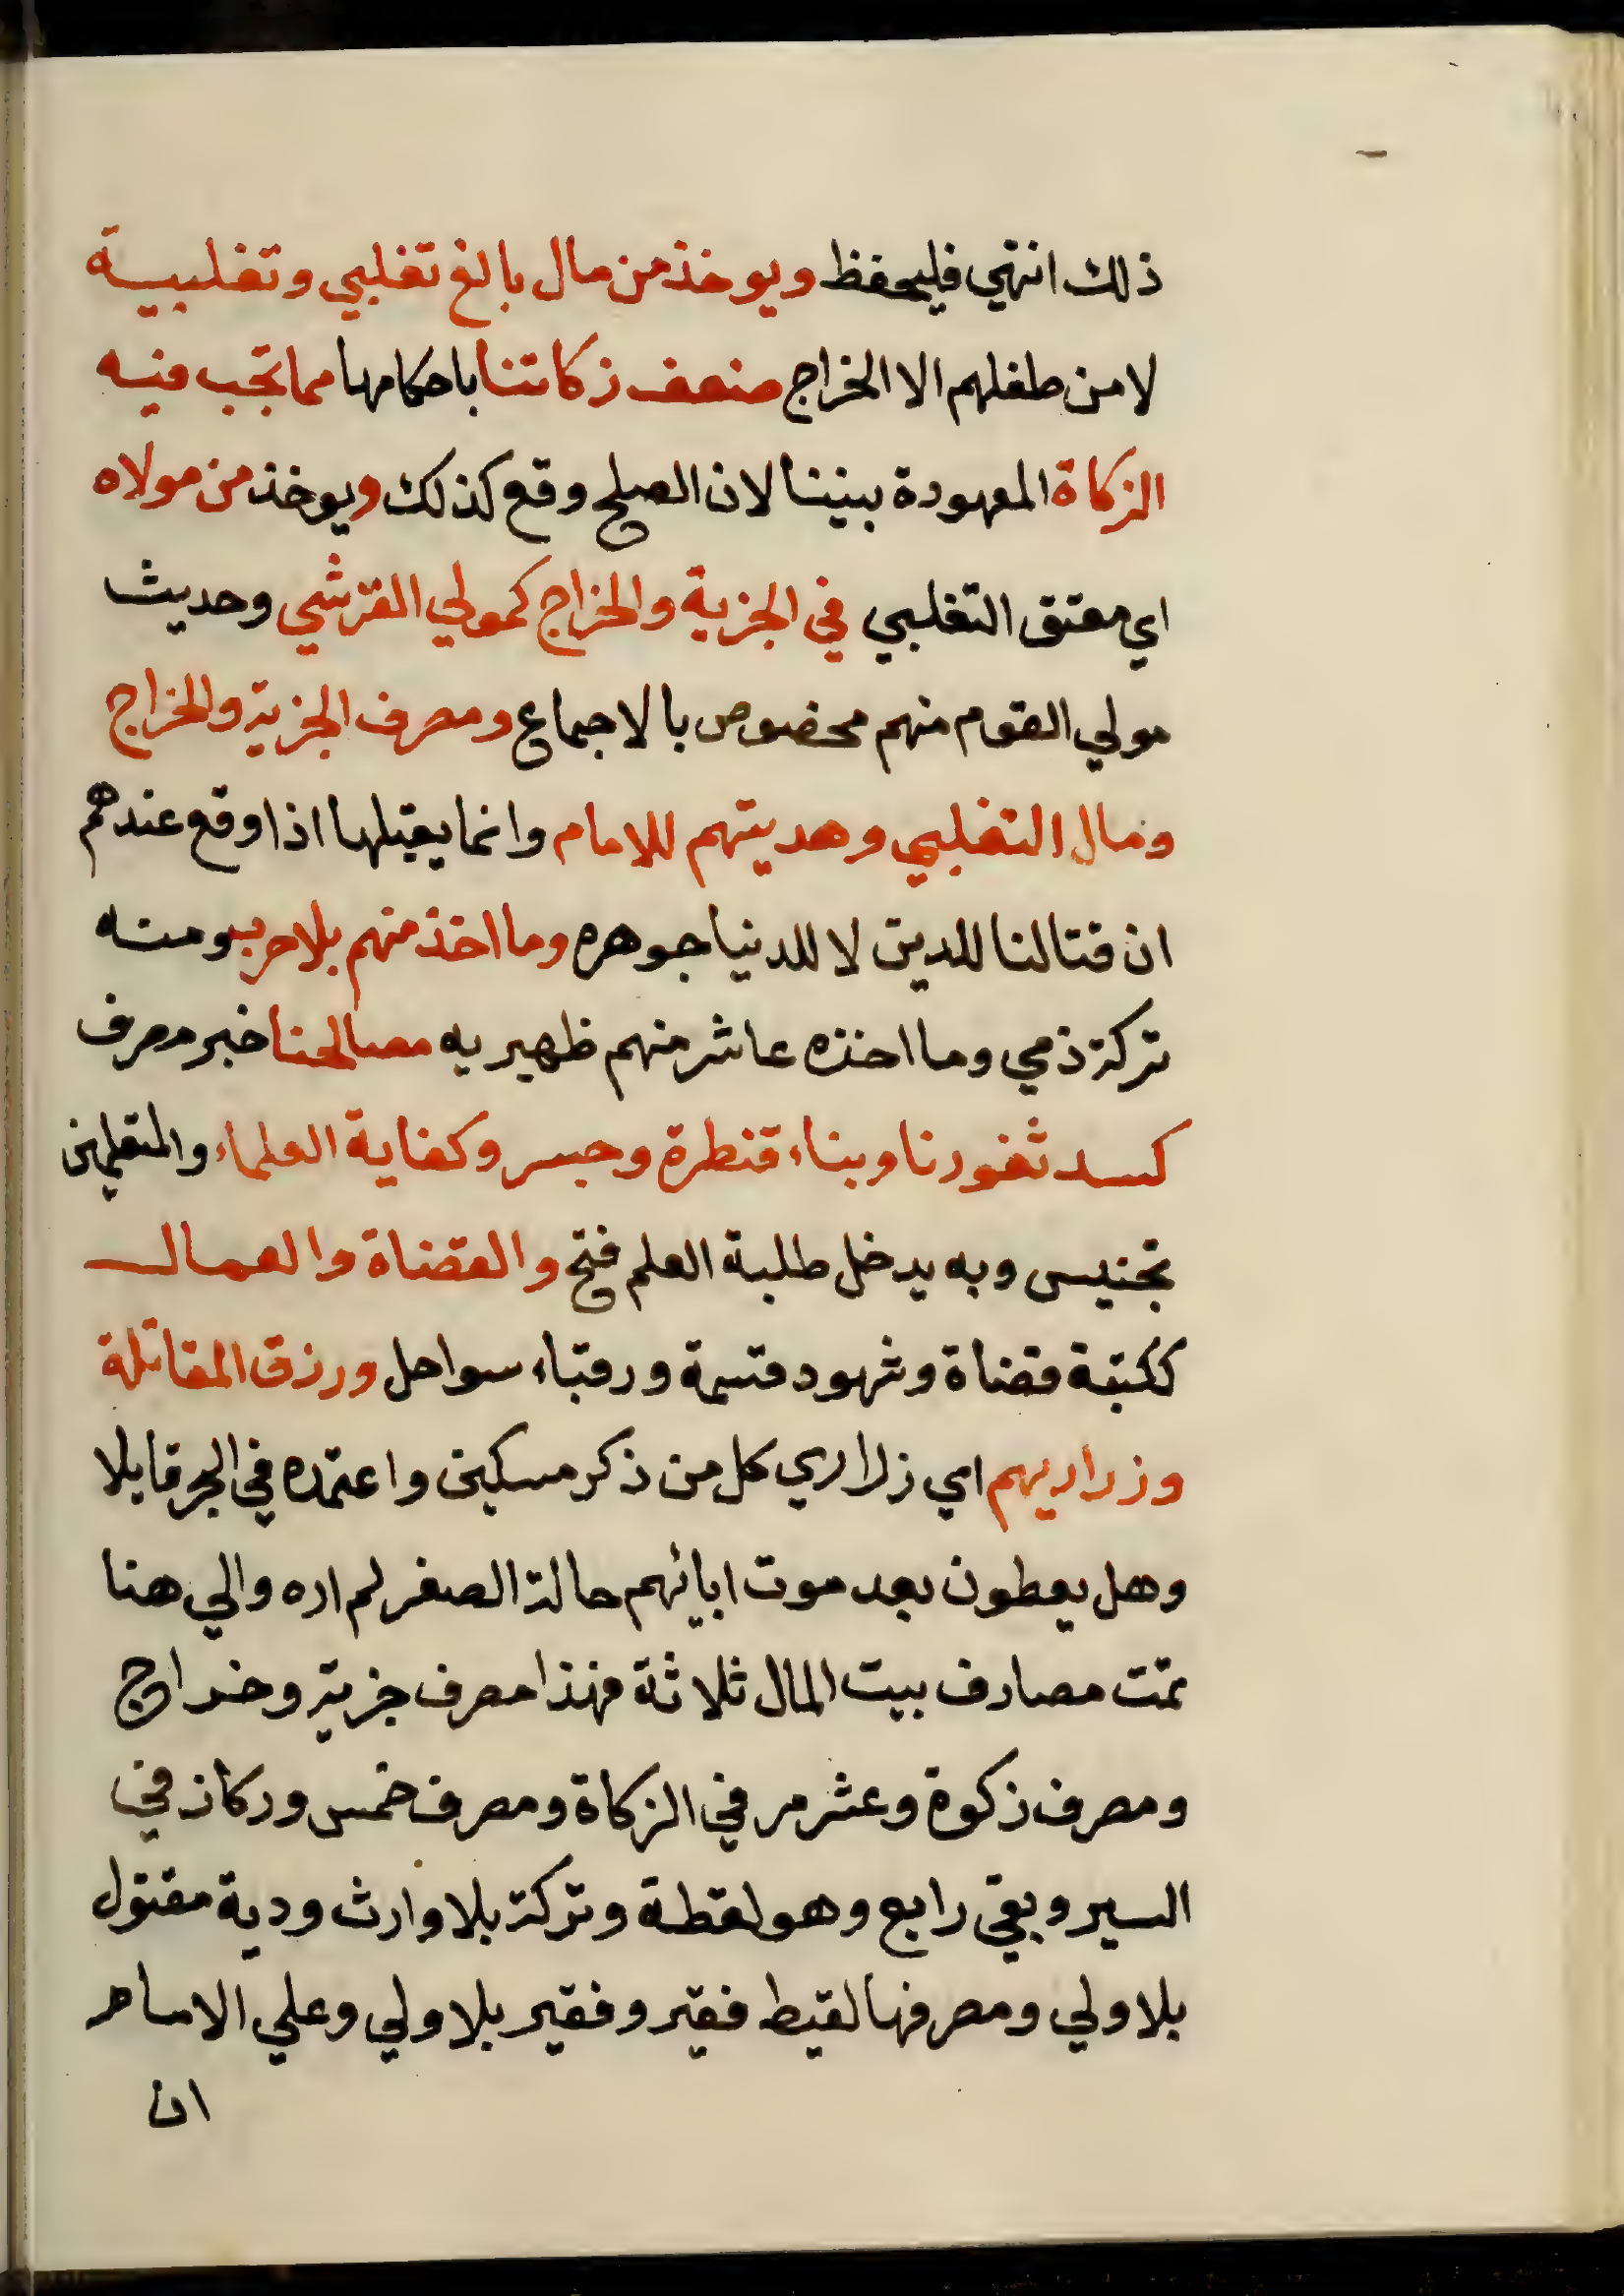 ذلك انتهي فليحفظ ويوخذ من مال بالغ تغلبي وتغلبية
لا من طفلهم الا الخراج ضعف زكاتنا باحكامها مما تجب فيه
الزكاة المعهودة بيننا لان الصلح وقع كذلك ويوخذ من مولاه
اي معتق التغلبي في الجزية والخراج كمولي القرشي وحديث
مولي القوم منهم مخصوص بالاجماع ومصرف الجزية والخراج
ومال التغلبي وهديتهم للامام وانما يقبلها اذا وقع عندهم
ان قتالنا للدين لا للدنيا جوهره وما اخذ منهم بلا حرب ومنه
تركة ذمي وما اخذه عاشر منهم ظهيريه مصالحنا خبر مصرف
كسد ثغورنا وبناء قنطرة وجسر وكفاية العلماء والمتعلمين
تجنيس وبه يدخل طلبة العلم فتح والقضاة والعمال
ككتبة قضاة وشهود قسمة ورقباء سواحل ورزق المقاتلة
وزراريهم اي زراري كل من ذكر مسكين واعتمده في البحر قايلا
وهل يعطون بعد موت ابائهم حالة الصغر لم اره والي هنا
تمت مصارف بيت المال ثلاثة فهذا مصرف جزية وخراج
ومصرف زكوة وعشر مر في الزكاة ومصرف خمس وركاز في
السير وبقي رابع وهو لقطة وتركة بلا وارث ودية مقتول
بلا ولي ومصرفها لقيط فقير وفقير بلا ولي وعلي الامام
ان